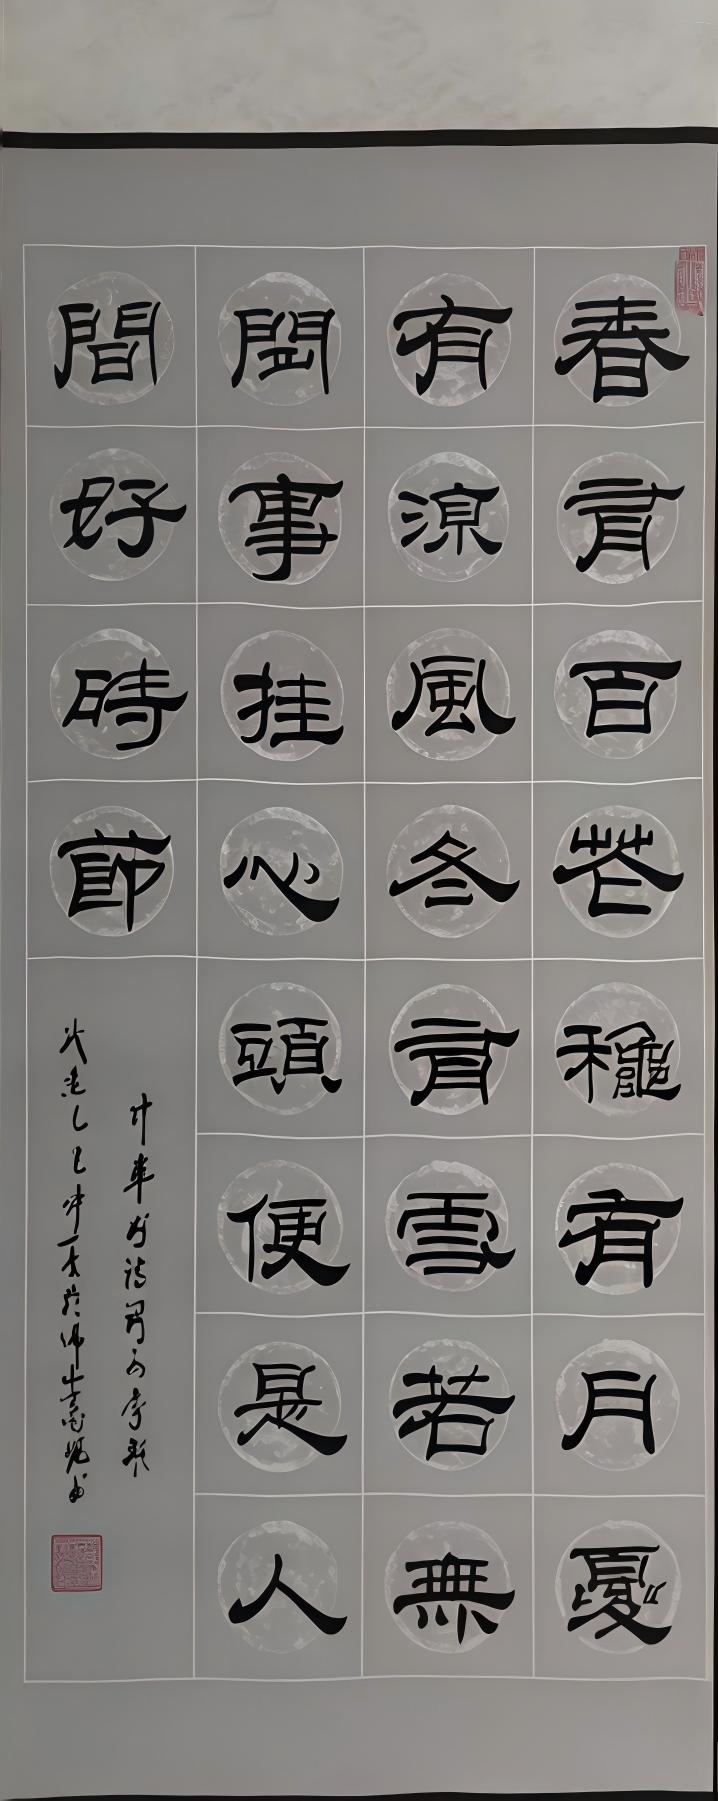 春有百花穐有月夏
有涼風冬有雪若無
閑事挂心頭便是人
間好時節
乙巳